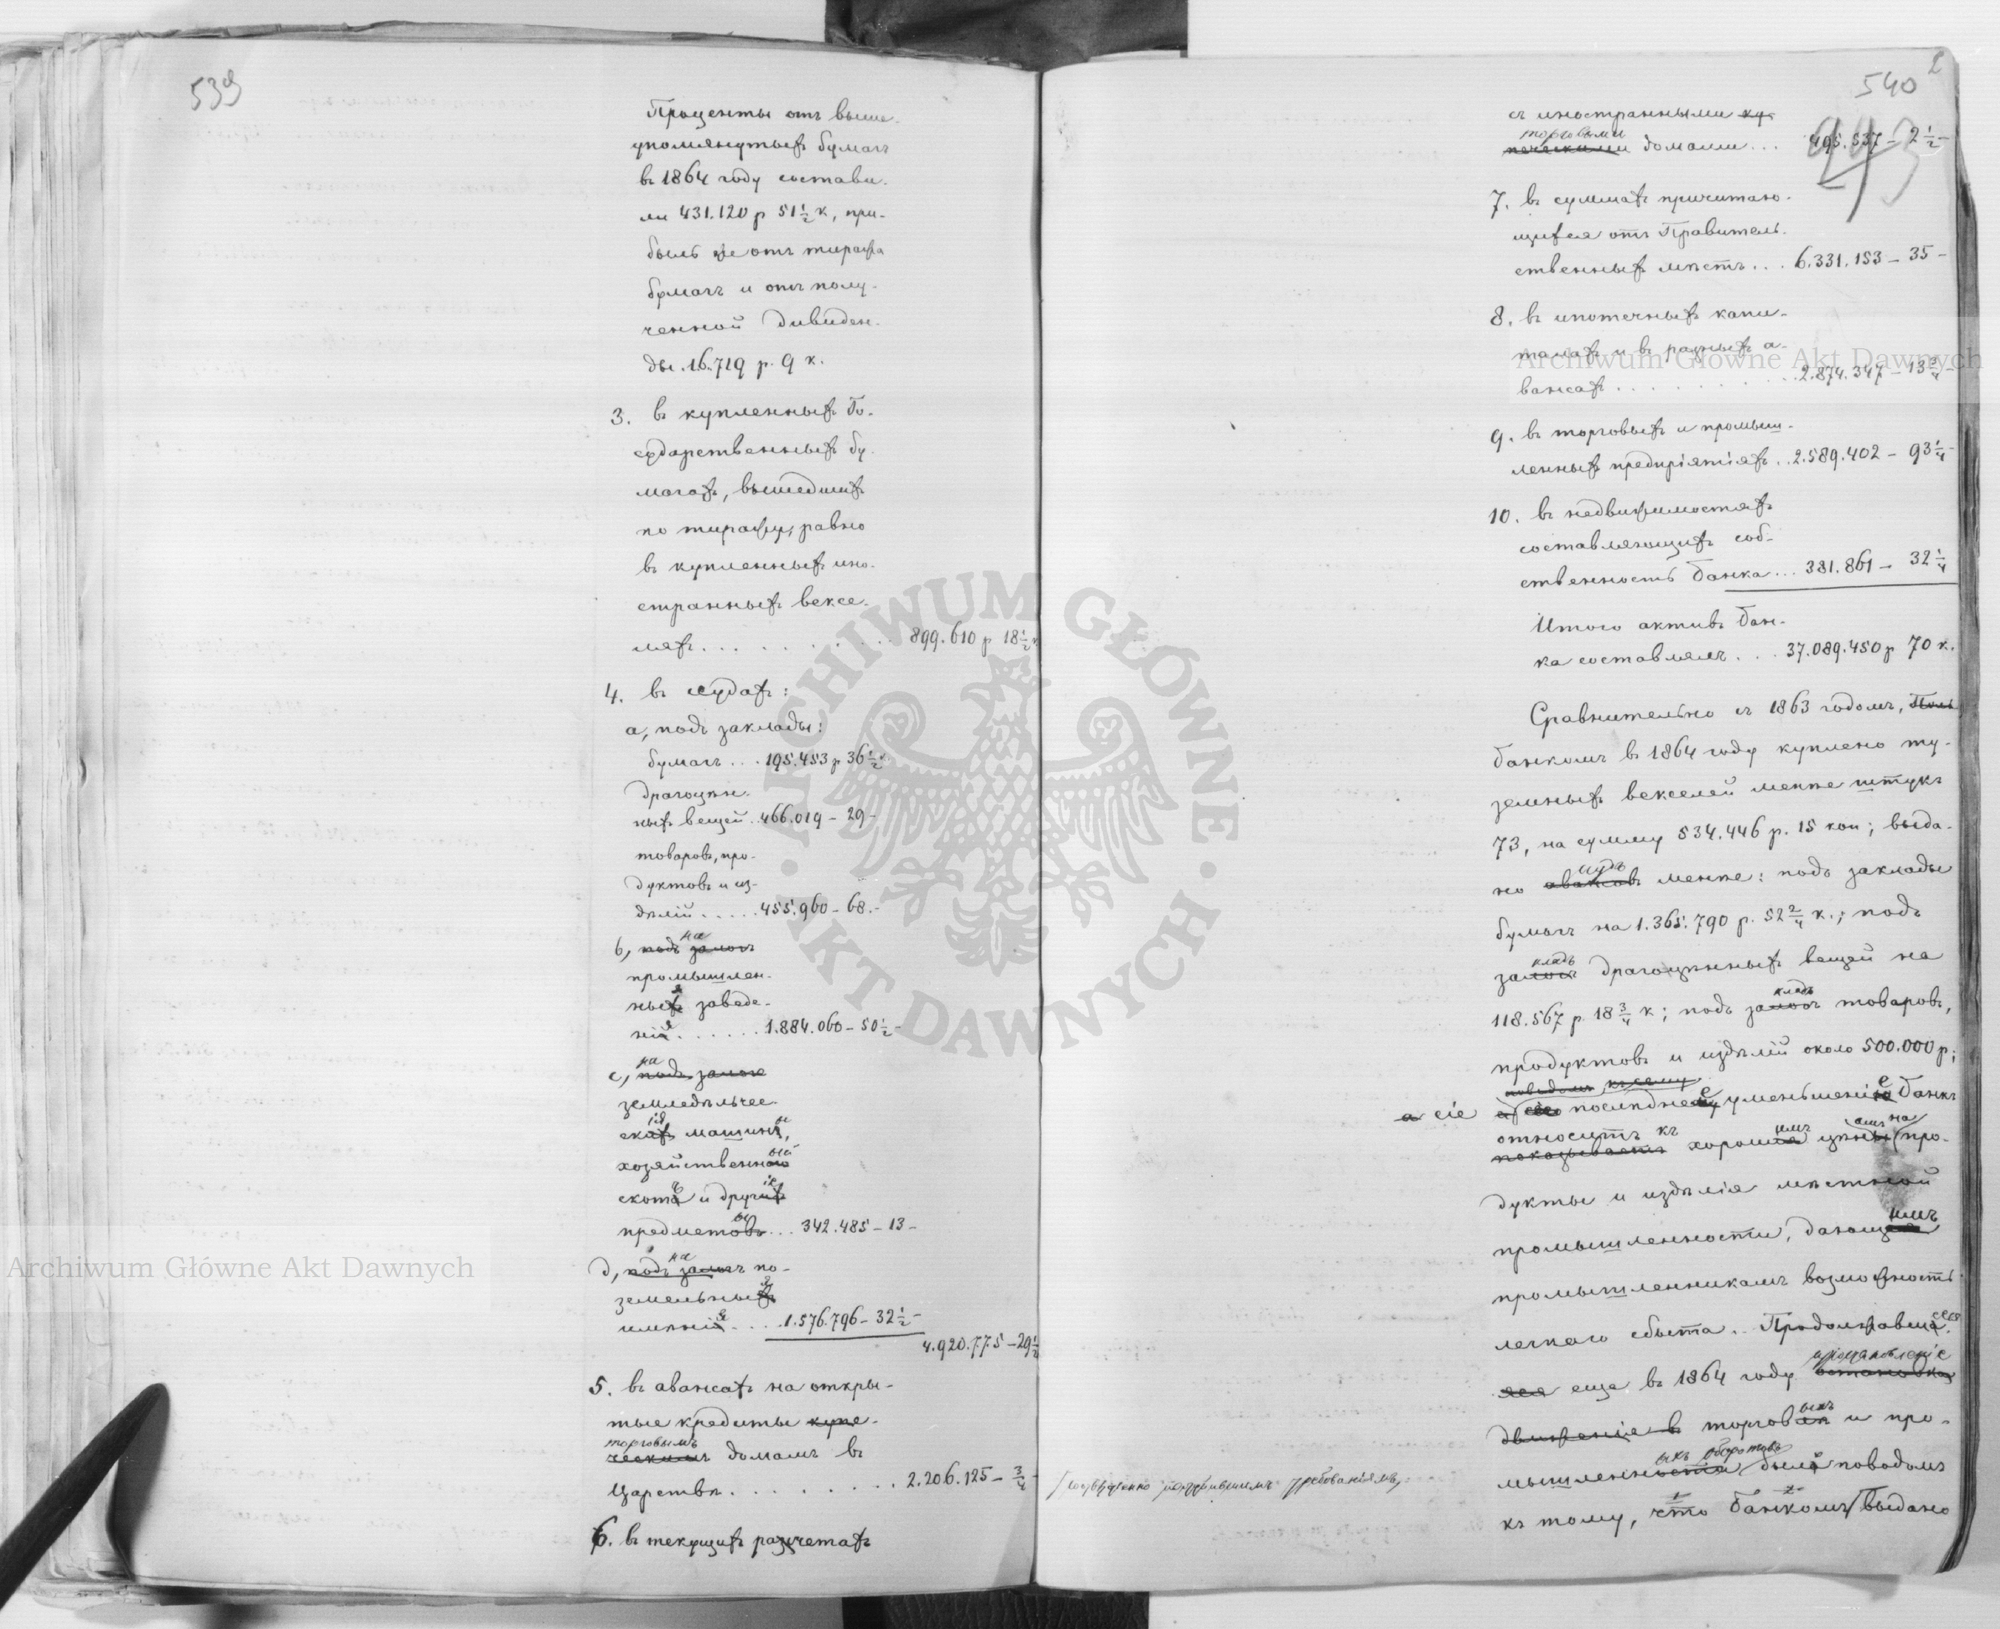 539
Проценты отъ выше-
упомянутыхъ бумагъ
въ 1864 году состави-
ли 431.120 р 51 1/2 к, при-
быль же отъ тиража
бумагъ и отъ полу-
ченной дивиден-
ды 16.719 р. 9 к.
3. въ купленныхъ Го-
сударственныхъ бу-
магахъ, вышедшихъ
по тиражу, равно
въ купленныхъ ино-
странныхъ вексе-
ляхъ . . . . . . . . 899.610 р 18 1/2 к
4. въ ссудахъ:
а, подъ заклады:
бумагъ . . . 195.453 р 36 1/2 к
драгоцѣн-
ныхъ вещей . . 466.019 – 29 –
товаровъ, про-
дуктовъ и из-
дѣлій . . . . . 455.960 – 68 . –
на
b, подъ залогъ
промышлен-
ныя заведе-
нія . . . . . . 1.884.060 – 50 1/2 –
на
с, подъ залогъ
земледѣльчес-
кія машины,
хозяйственный
скотъ и другіе
предметы . . . 342.485 – 13 –
на
d, подъ залогъ по-
земельныя
имѣнія . . . . 1.576.796 – 32 1/2 –
4.920.775 – 29 1/2
5. въ авансахъ на откры-
тые кредиты купе-
торговымъ
ческимъ домамъ въ
Царствѣ . . . . . . . . 2.206.125 – 3/4 –
6. въ текущихъ разчетахъ
2
540
273
съ иностранными ку-
торговыми
печескими домами . . . 495.537 – 2 1/2 –
7. въ суммахъ причитаю-
щихся отъ Правитель-
ственныхъ мѣстъ . . . 6.331.153 – 35 –
8. въ ипотечныхъ капи-
талахъ и въ разныхъ а-
вансахъ . . . . . . . . . 2.874.347 – 13 3/4 –
9. въ торговыхъ и промыш-
ленныхъ предпріятіяхъ . . 2.589.402 – 93 1/4 –
10. въ недвижимостяхъ
составляющихъ соб-
ственность Банка . . . 381.861 – 32 1/4
Итого активъ Бан-
ка составлялъ . . . 37.089.450 р 70 к.
Сравнительно съ 1863 годомъ, Поль
банкомъ въ 1864 году куплено ту-
земныхъ векселей менѣе штукъ
73, на сумму 534.446 р. 15 коп; выда-
ссудъ
но авансовъ менѣе: подъ заклады
бумагъ на 1.365.790 р. 52 2/4 к.; подъ
кладъ
залогъ драгоцѣнныхъ вещей на
кладъ
118.567 р 18 3/4 к; подъ залогъ товаровъ,
продуктовъ и издѣлій около 500.000 р;
поводомъ къ сему
а сіе последнее уменьшеніе Банкъ
относитъ къ
показываетъ хорошимъ цѣнамъ на про-
дукты и издѣлія мѣстной
промышленности, дающимъ
промышленникамъ возможность
легкаго сбыта. Продолжавшееся
еще въ 1864 году пріостановленіе
остановка
движеніе въ торговыхъ и про-
ыхъ оборотовъ
мышленности было поводомъ
къ тому, что банкомъ выдано
Archiwum Główne Akt Dawnych
Archiwum Główne Akt Dawnych
ARCHIWUM GŁÓWNE · AKT DAWNYCH ·